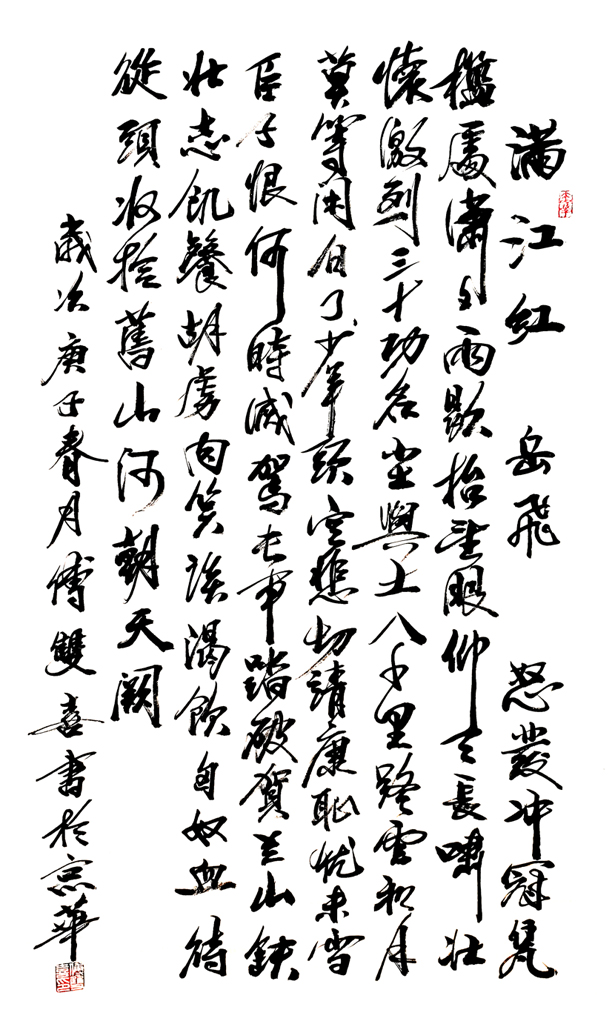 滿江紅 岳飛 怒發冲冠凭
檻處瀟々雨歇抬望眼仰天長嘯壯
懷激烈三十功名塵與土八千里路雲和月
莫等閑白了少年頭空悲切靖康恥犹未雪
臣子恨何時滅駕長車踏破賀兰山缺
壯志飢餐胡虜肉笑談渴飲匈奴血待
從頭收拾舊山河朝天闕
歲次庚子春月傅雙喜書於京華